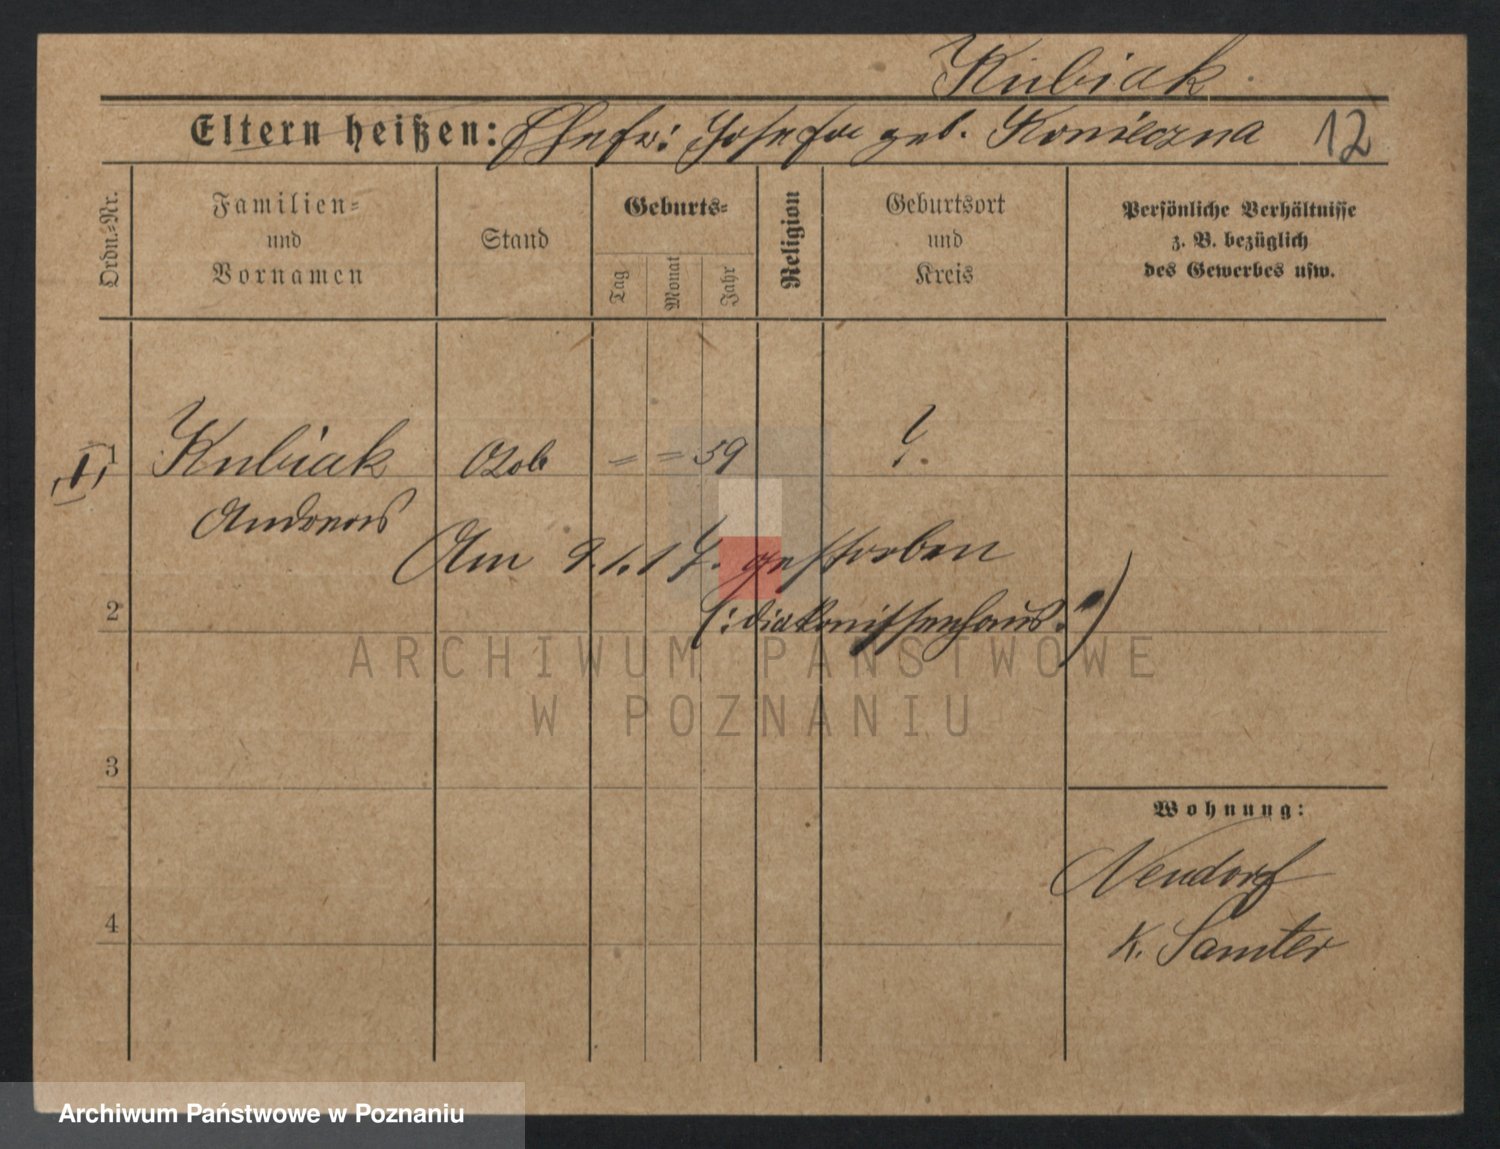 Kubiak.
Eltern heißen: Ehefr: Josefa geb. Konieczna 12
Ordn.=Nr.
Familien=
und
Vornamen
Stand
Geburts=
Tag
Monat
Jahr
Religion
Geburtsort
und
Kreis
Persönliche Verhältnisse
z. B. bezüglich
des Gewerbes usw.
1 Kubiak = = 59 ?.
Andreas
Am gestorben
2 (: Diakonissenhaus :)
ARCHIWUM PAŃSTWOWE
W POZNANIU
3
Wohnung:
Neudorf
4
K. Samter
Archiwum Państwowe w Poznaniu